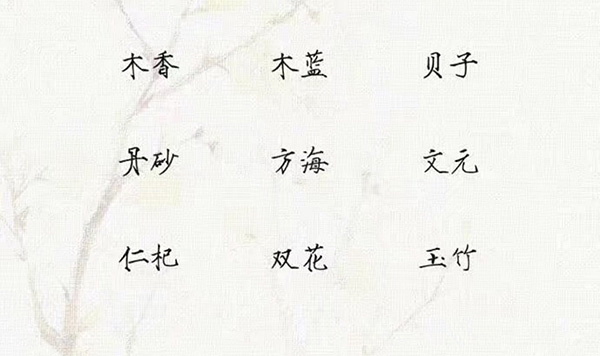 木香 木蓝 贝子
丹砂 方海 文元
仁杞 双花 玉竹